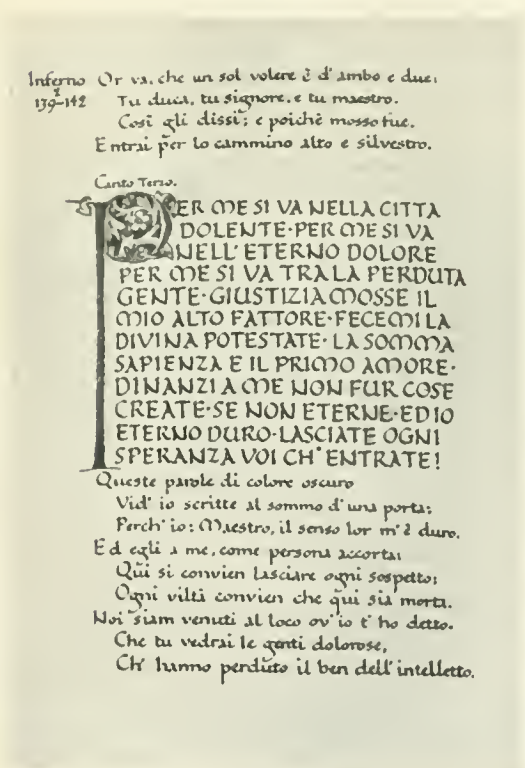 Inferno Or va, che un sol volere è d' ambo e due:
I
139-142 Tu duca, tu signore, e tu maestro.
Così gli dissi; e poichè mosso fue,
Entrai per lo cammino alto e silvestro.
Canto Terzo.
PER ME SI VA NELLA CITTA
DOLENTE·PER ME SI VA
NELL' ETERNO DOLORE
PER ME SI VA TRA LA PERDUTA
GENTE·GIUSTIZIA MOSSE IL
MIO ALTO FATTORE·FECEMI LA
DIVINA POTESTATE·LA SOMMA
SAPIENZA E IL PRIMO AMORE·
DINANZI A ME NON FUR COSE
CREATE·SE NON ETERNE·ED IO
ETERNO DURO·LASCIATE OGNI
SPERANZA VOI CH' ENTRATE!
Queste parole di colore oscuro
Vid' io scritte al sommo d' una porta;
Perch' io: Maestro, il senso lor m' è duro.
Ed egli a me, come persona accorta:
Qui si convien lasciare ogni sospetto;
Ogni viltà convien che qui sia morta.
Noi siam venuti al loco ov' io t' ho detto.
Che tu vedrai le genti dolorose,
Ch' hanno perduto il ben dell' intelletto.